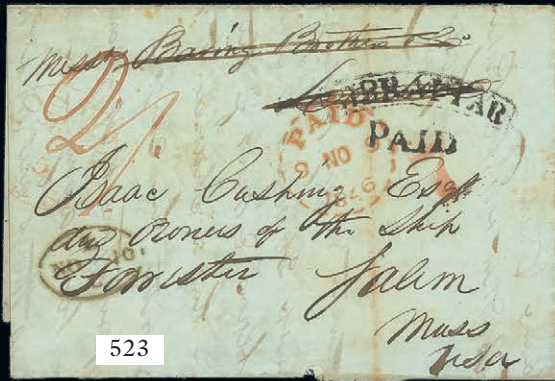 Messrs Baring Brothers & Co
GIBRALTAR
PAID
PAID
NO
Isaac Cushing Esqr
owners of the Ship
Forrister Salem
Mass
Usa
523